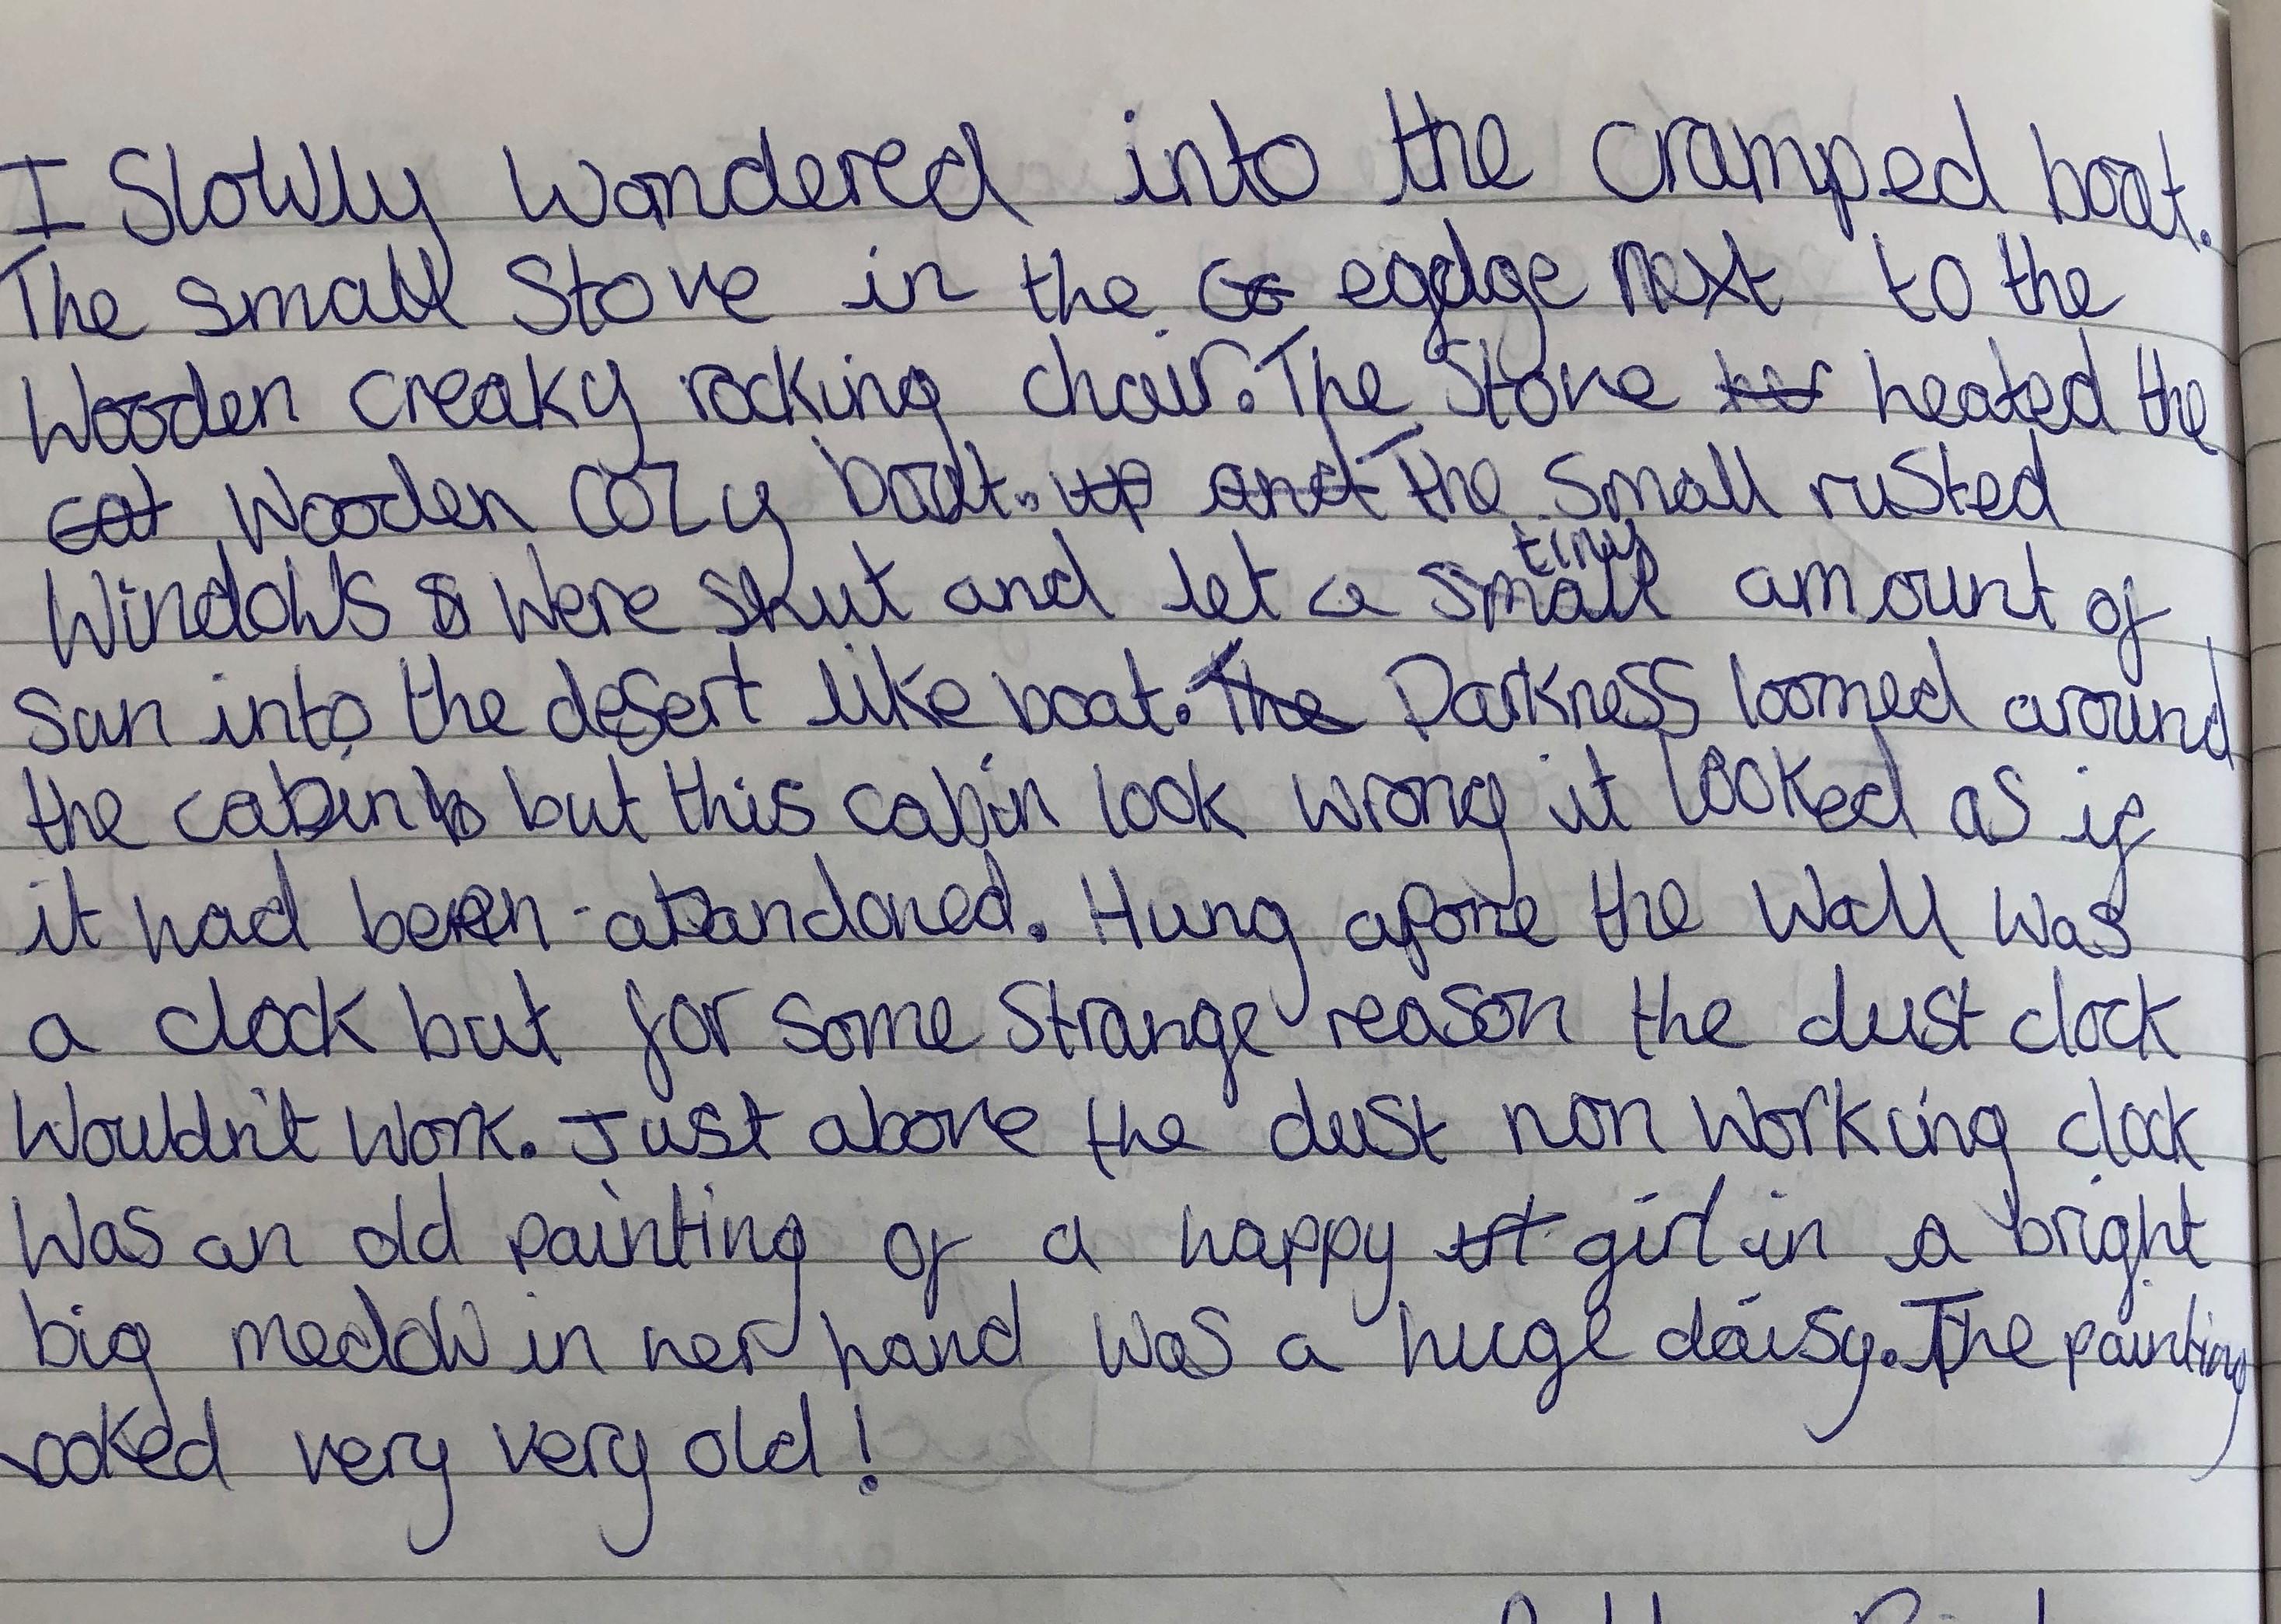 I Slowly Wondered into the cramped boat.
The small Stove in the egdge next to the
Wooden creaky rocking chair. The Stove heated the
Wooden COZy boat. The Small rusted
Windows Were shut and let a tiny small amount of
Sun into the desert like boat. Darkness loomed around
the cabin but this cabin look wrong it looked as if
it had been abandoned. Hung apone the Wall was
a clock but for some Strange reason the dust clock
Wouldn't Work. Just above the dust non Working clock
Was an old painting of a happy girl in a bright
big medow in her hand was a huge daisy. The painting
looked very very old!